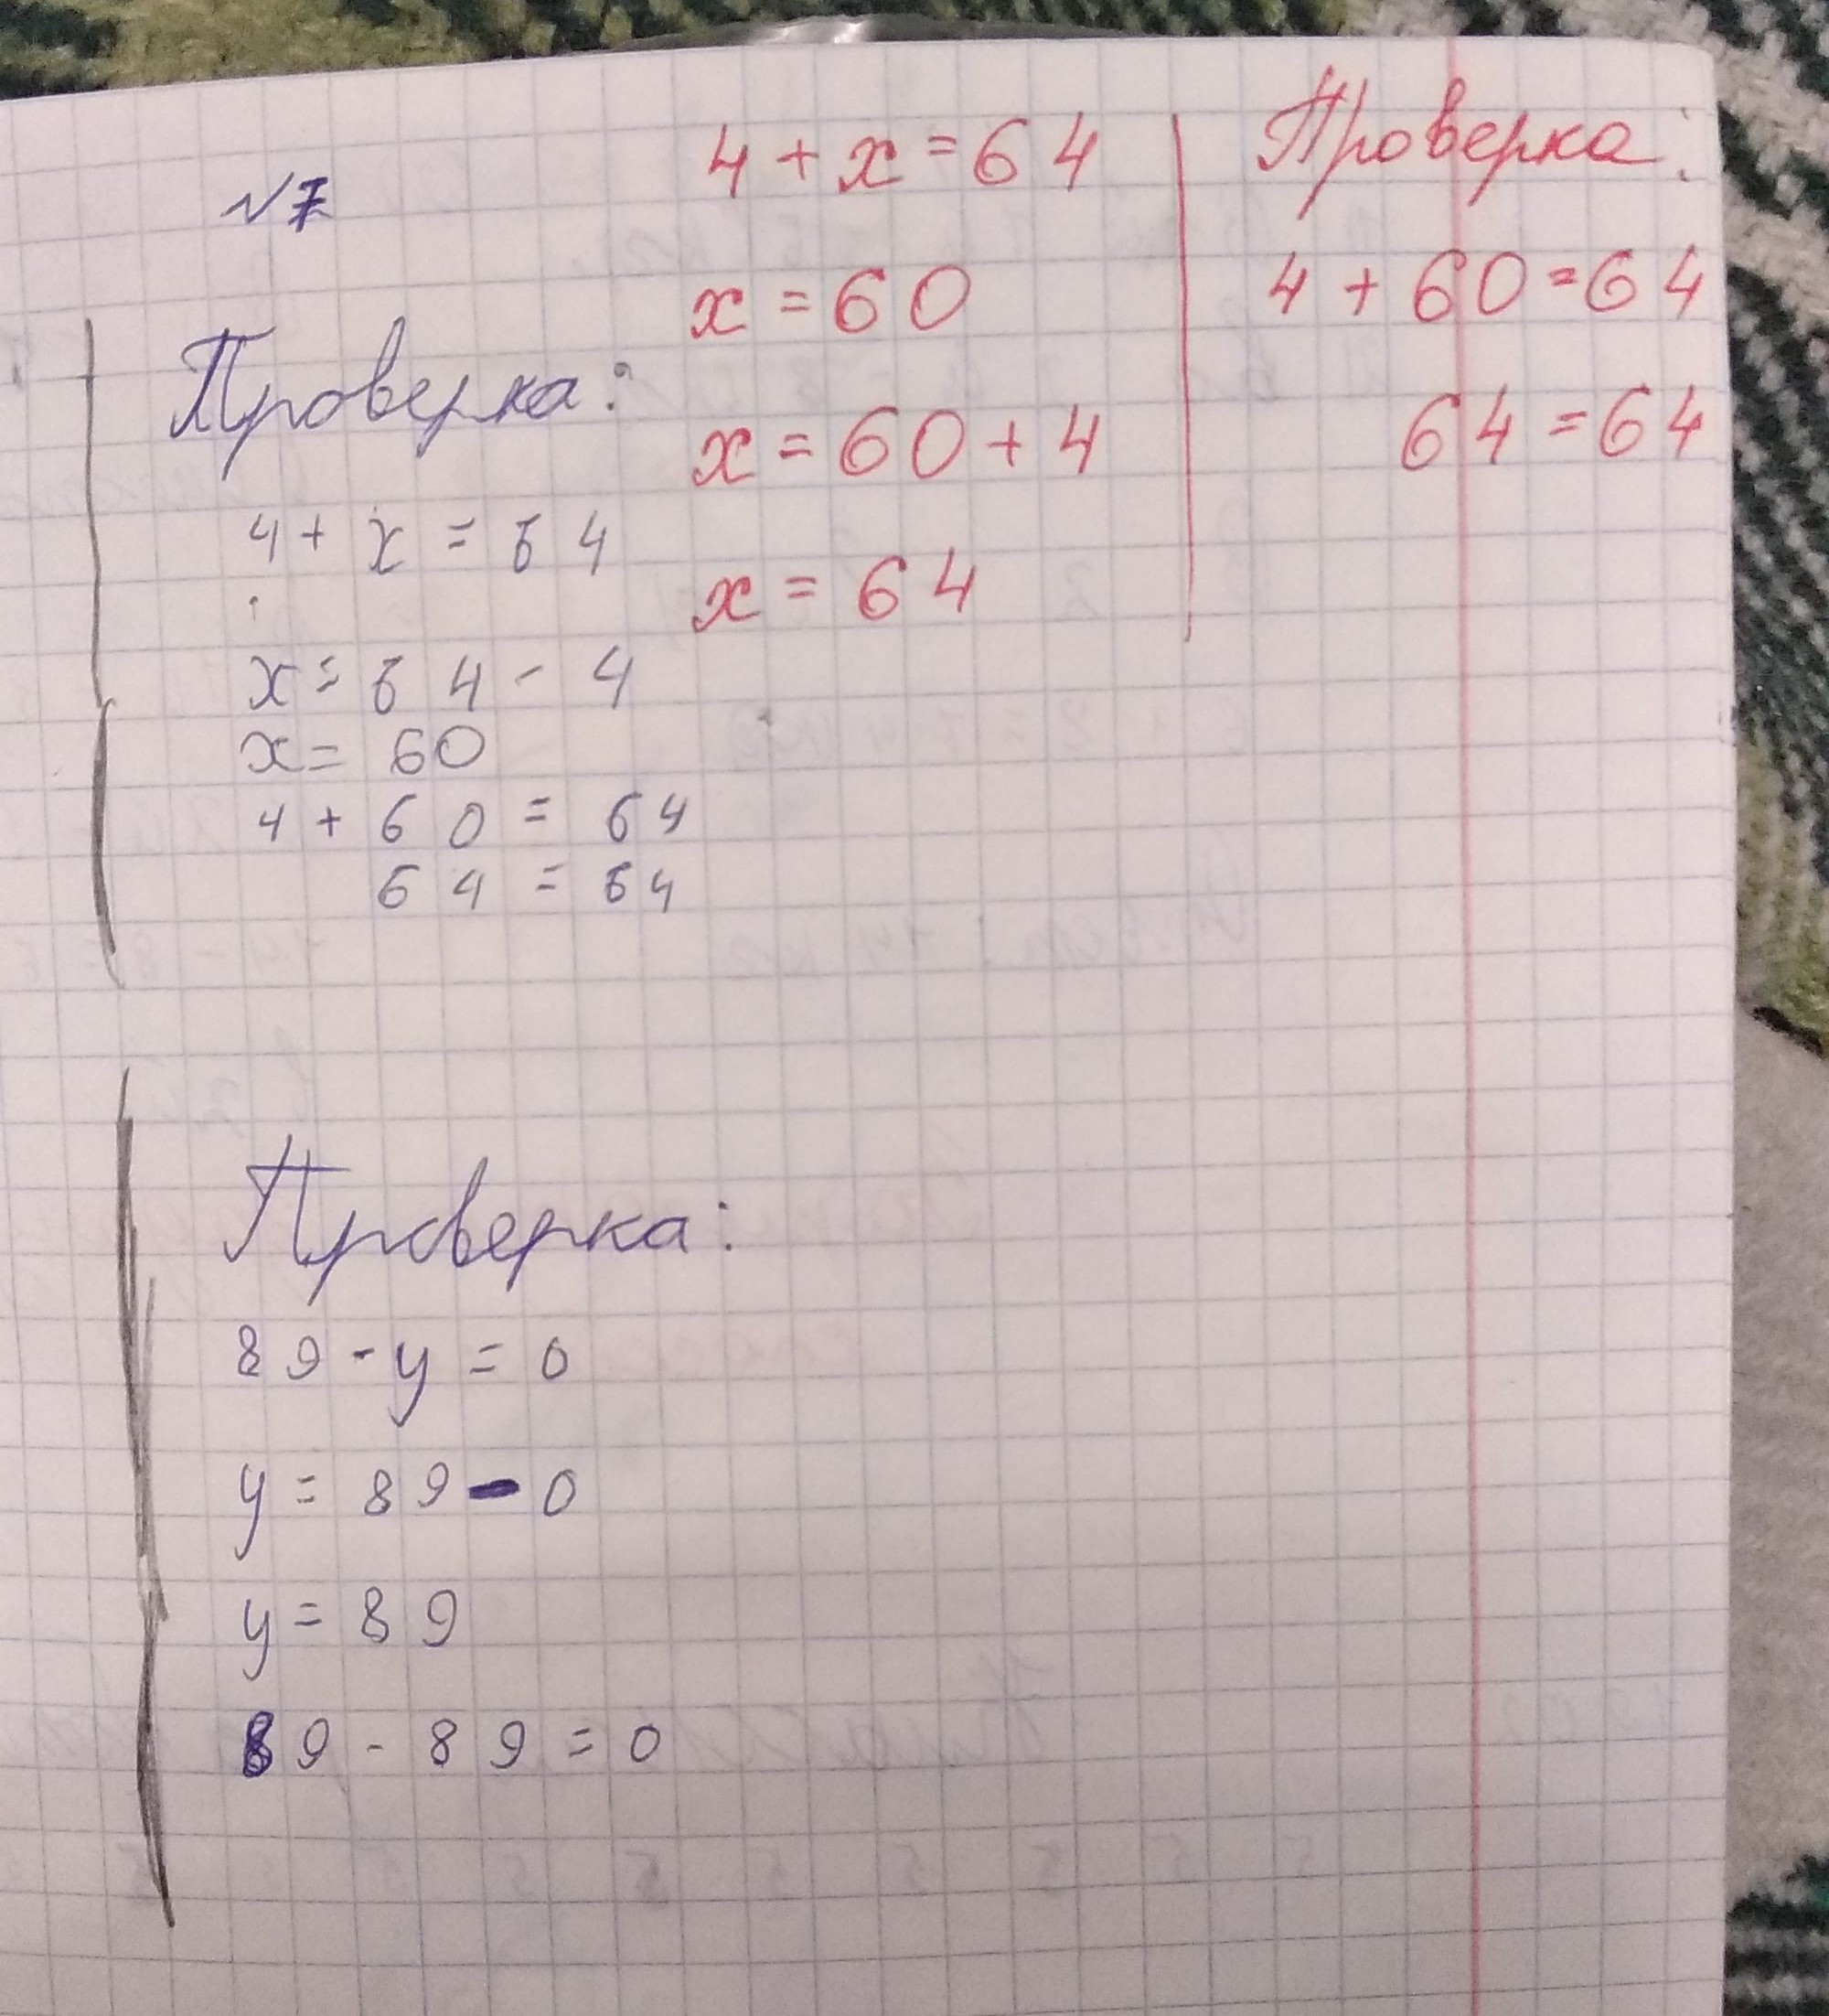 №7
4 + x = 64
x = 60
x = 60 + 4
x = 64
Проверка:
4 + 60 = 64
64 = 64
Проверка:
4 + x = 64
x = 64 - 4
x = 60
4 + 60 = 64
64 = 64
Проверка:
89 - y = 0
y = 89 - 0
y = 89
89 - 89 = 0